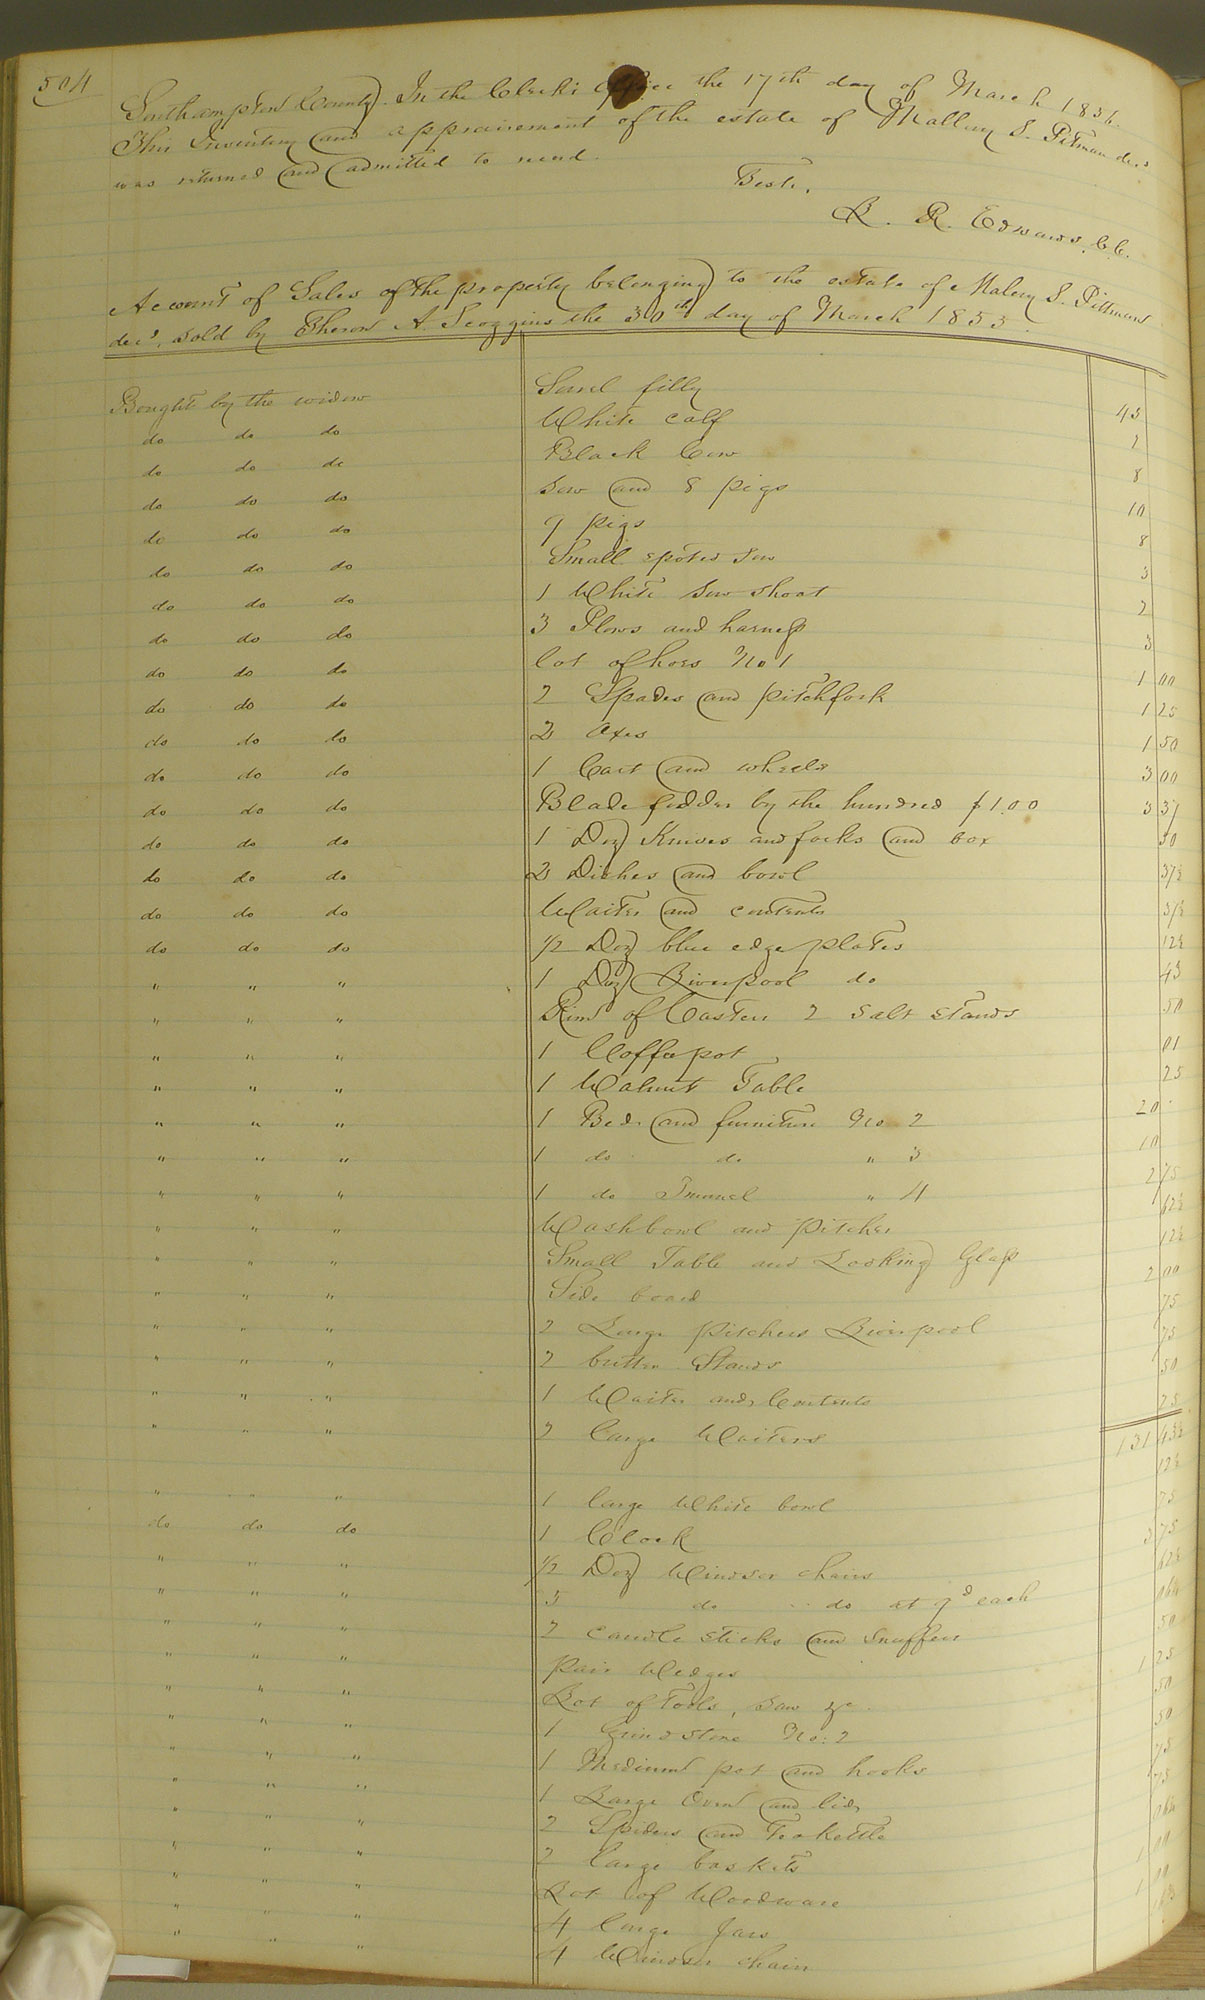 504
Southampton County. In the Clerk's office the 17th day of March 185
This Inventory and appraisement of the estate of Mallery S. Pitman decd
was returned and admitted to record.
Teste,
L. R. Edwards, C.C.
Account of Sales of the property belonging to the estate of Malery S. Pittman
decd. sold by Theron A. Scoggins the 30th day of March 1855
Bought by the widow Sorrel filly 45
do do do White calf 2
do do do Black Cow 8
do do do Sow and 8 pigs 10
do do do 9 pigs 8
do do do Small spoted Sow 3
do do do 1 White Sow shoat 2
do do do 3 Plows and harness 3
do do do lot of hoes No 1 1 00
do do do 2 Spades and pitchfork 1 25
do do do 2 Axes 1 50
do do do 1 Cart and wheels 3 00
do do do Blade fodder by the hundred $1.00 3 37
do do do 1 Doz Knives and forks and box 50
do do do 2 Dishes and bowl 37½
do do do Waiter and contents 37½
do do do ½ Doz blue edge plates 12½
" " " 1 Doz Liverpool do 45
" " " Rim of Casters 2 Salt stands 50
" " " 1 Coffepot 01
" " " 1 Walnut Table 25
" " " 1 Bed and furniture No 2 20
" " " 1 do do " 3 10
" " " 1 do Trunnel " 4 2 75
" " " Washbowl and Pitcher 62½
" " " Small Table and Looking Glass 12½
" " " Side board 2 00
" " " 2 Large Pitchers Liverpool 75
" " " 2 butter Stands 75
" " " 1 Waiter and Contents 50
" " " 2 large Waiters 25
131 43½
" " " 1 large White bowl 12½
do do do 1 Clock 75
" " " ½ Doz Windsor chairs 3 75
" " " 5 do do at 9d each 62½
" " " 2 candle sticks and Snuffers 06¼
" " " Pair Wedges 50
" " " Lot of Tools, Saw &c. 1 25
" " " 1 Grindstone No. 2 50
" " " 1 Medium pot and hooks 50
" " " 1 Large Oven and lid 75
" " " 2 Spiders and Teakettle 75
" " " 2 large baskets 06¼
" " " Lot of Woodware 1 00
" " " 4 large Jars 1 00
" " " 4 Windsor chairs